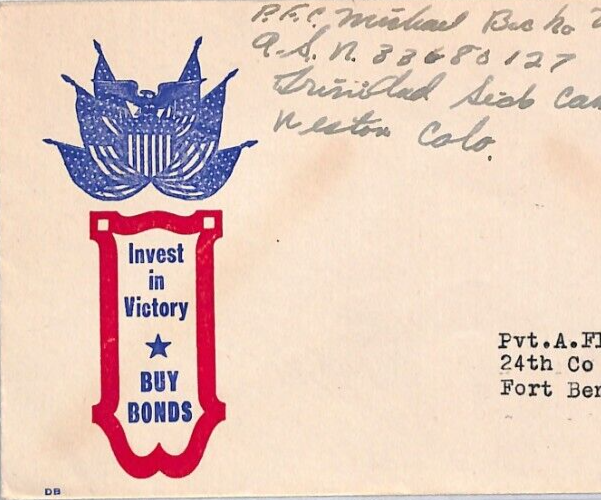 P.F.C. Michael
A.S.N. 33680127
Trinidad Side Cam
Weston Colo.
Invest
in
Victory
BUY
BONDS
Pvt.A.Fl
24th Co
Fort Ben
DB